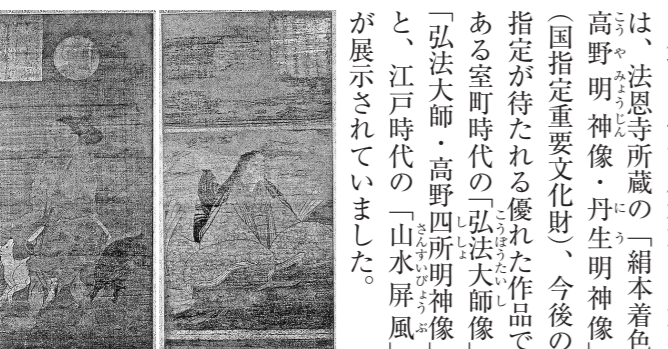 は、法恩寺所蔵の「絹本着色
高野明神像・丹生明神像」
（国指定重要文化財）、今後の
指定が待たれる優れた作品で
ある室町時代の「弘法大師像」
「弘法大師・高野四所明神像」
と、江戸時代の「山水屏風」
が展示されていました。